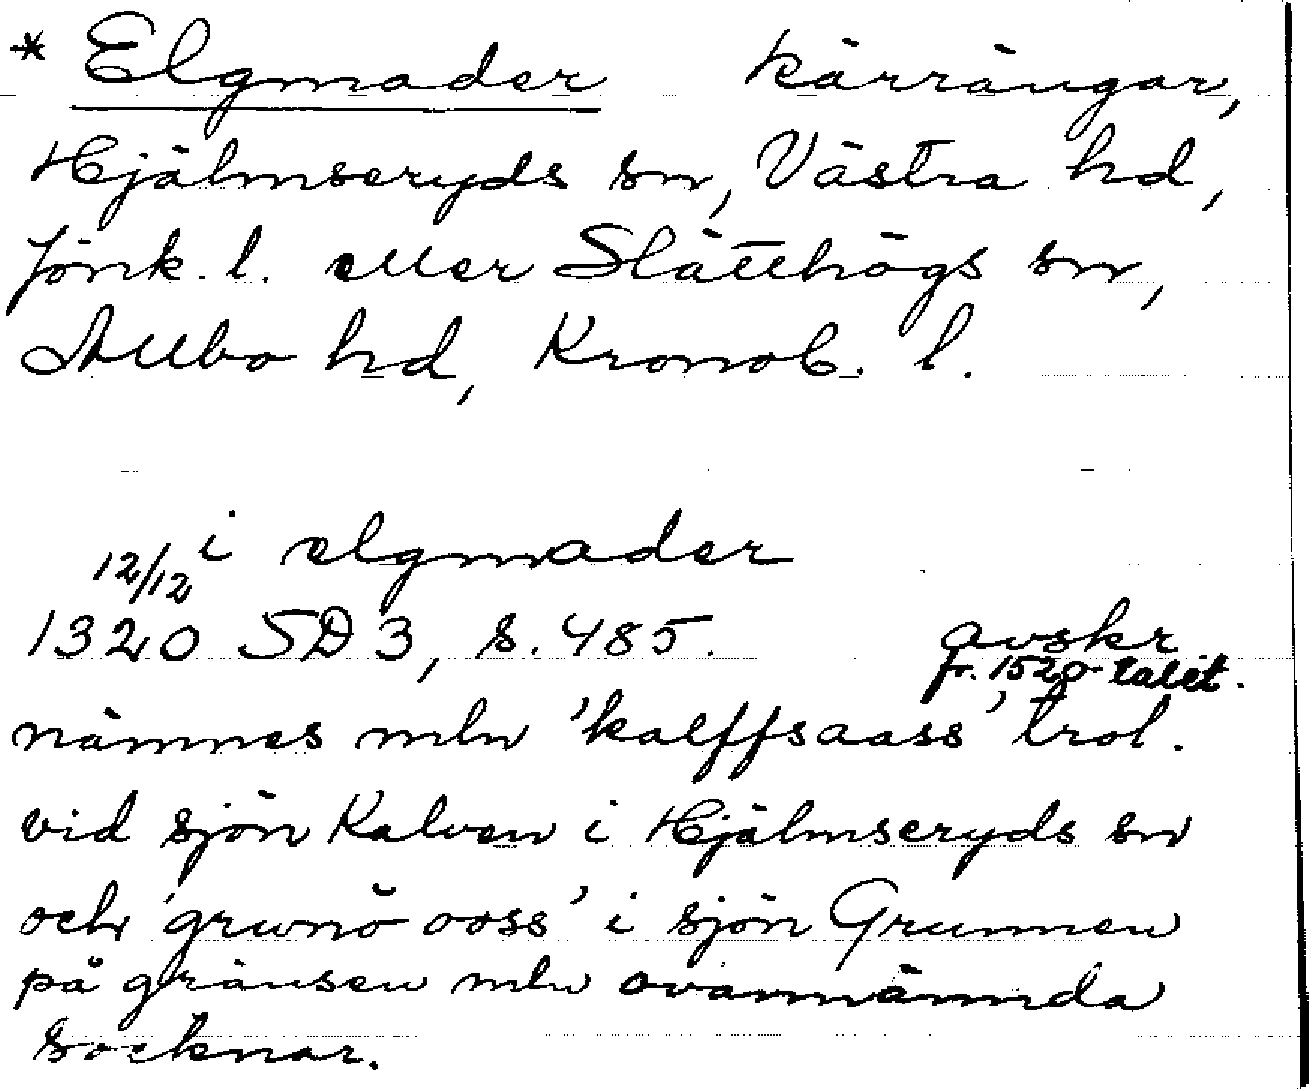 * Elgmader kärrängar,
Hjälmseryds sn, Västra hd,
Jönk. l. eller Slätthögs sn,
Allbo hd, Kronob. l.
i elgmader
12/12
1320 SD 3, s. 485. avskr
fr. 1520-talet.
nämnes mln 'kalffsaass', trol.
vid sjön Kalven i Hjälmseryds sn
och 'grwnö ooss' i sjön Grunnen
på gränsen mln ovannämnda
socknar.